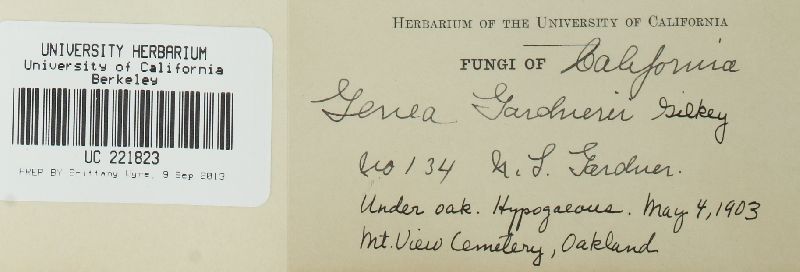 UNIVERSITY HERBARIUM
University of California
Berkeley
UC 221823
PREP BY Brittany Vyre, 9 Sep 2013
HERBARIUM OF THE UNIVERSITY OF CALIFORNIA
FUNGI OF California
Genea Gardnerii Gilkey
No 134 N. L. Gardner.
Under oak. Hypogaeous. May 4, 1903
Mt. View Cemetery, Oakland